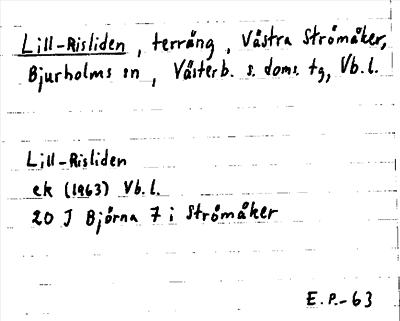 Lill-Risliden, terräng, Västra Strömåker,
Bjurholms sn, Västerb. s. doms. tg, Vb. l.
Lill-Risliden
ek (1963) Vb. l.
20 J Björna 7 i Strömåker
E. P.-63